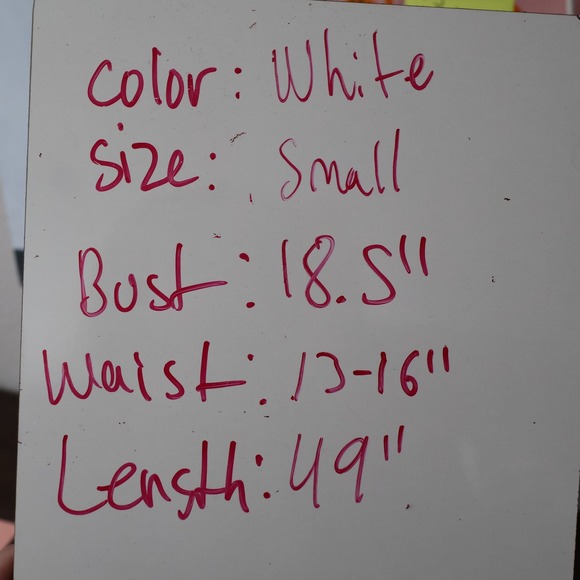 Color: White
Size: Small
Bust: 18.5"
Waist: 13-16"
Length: 49"